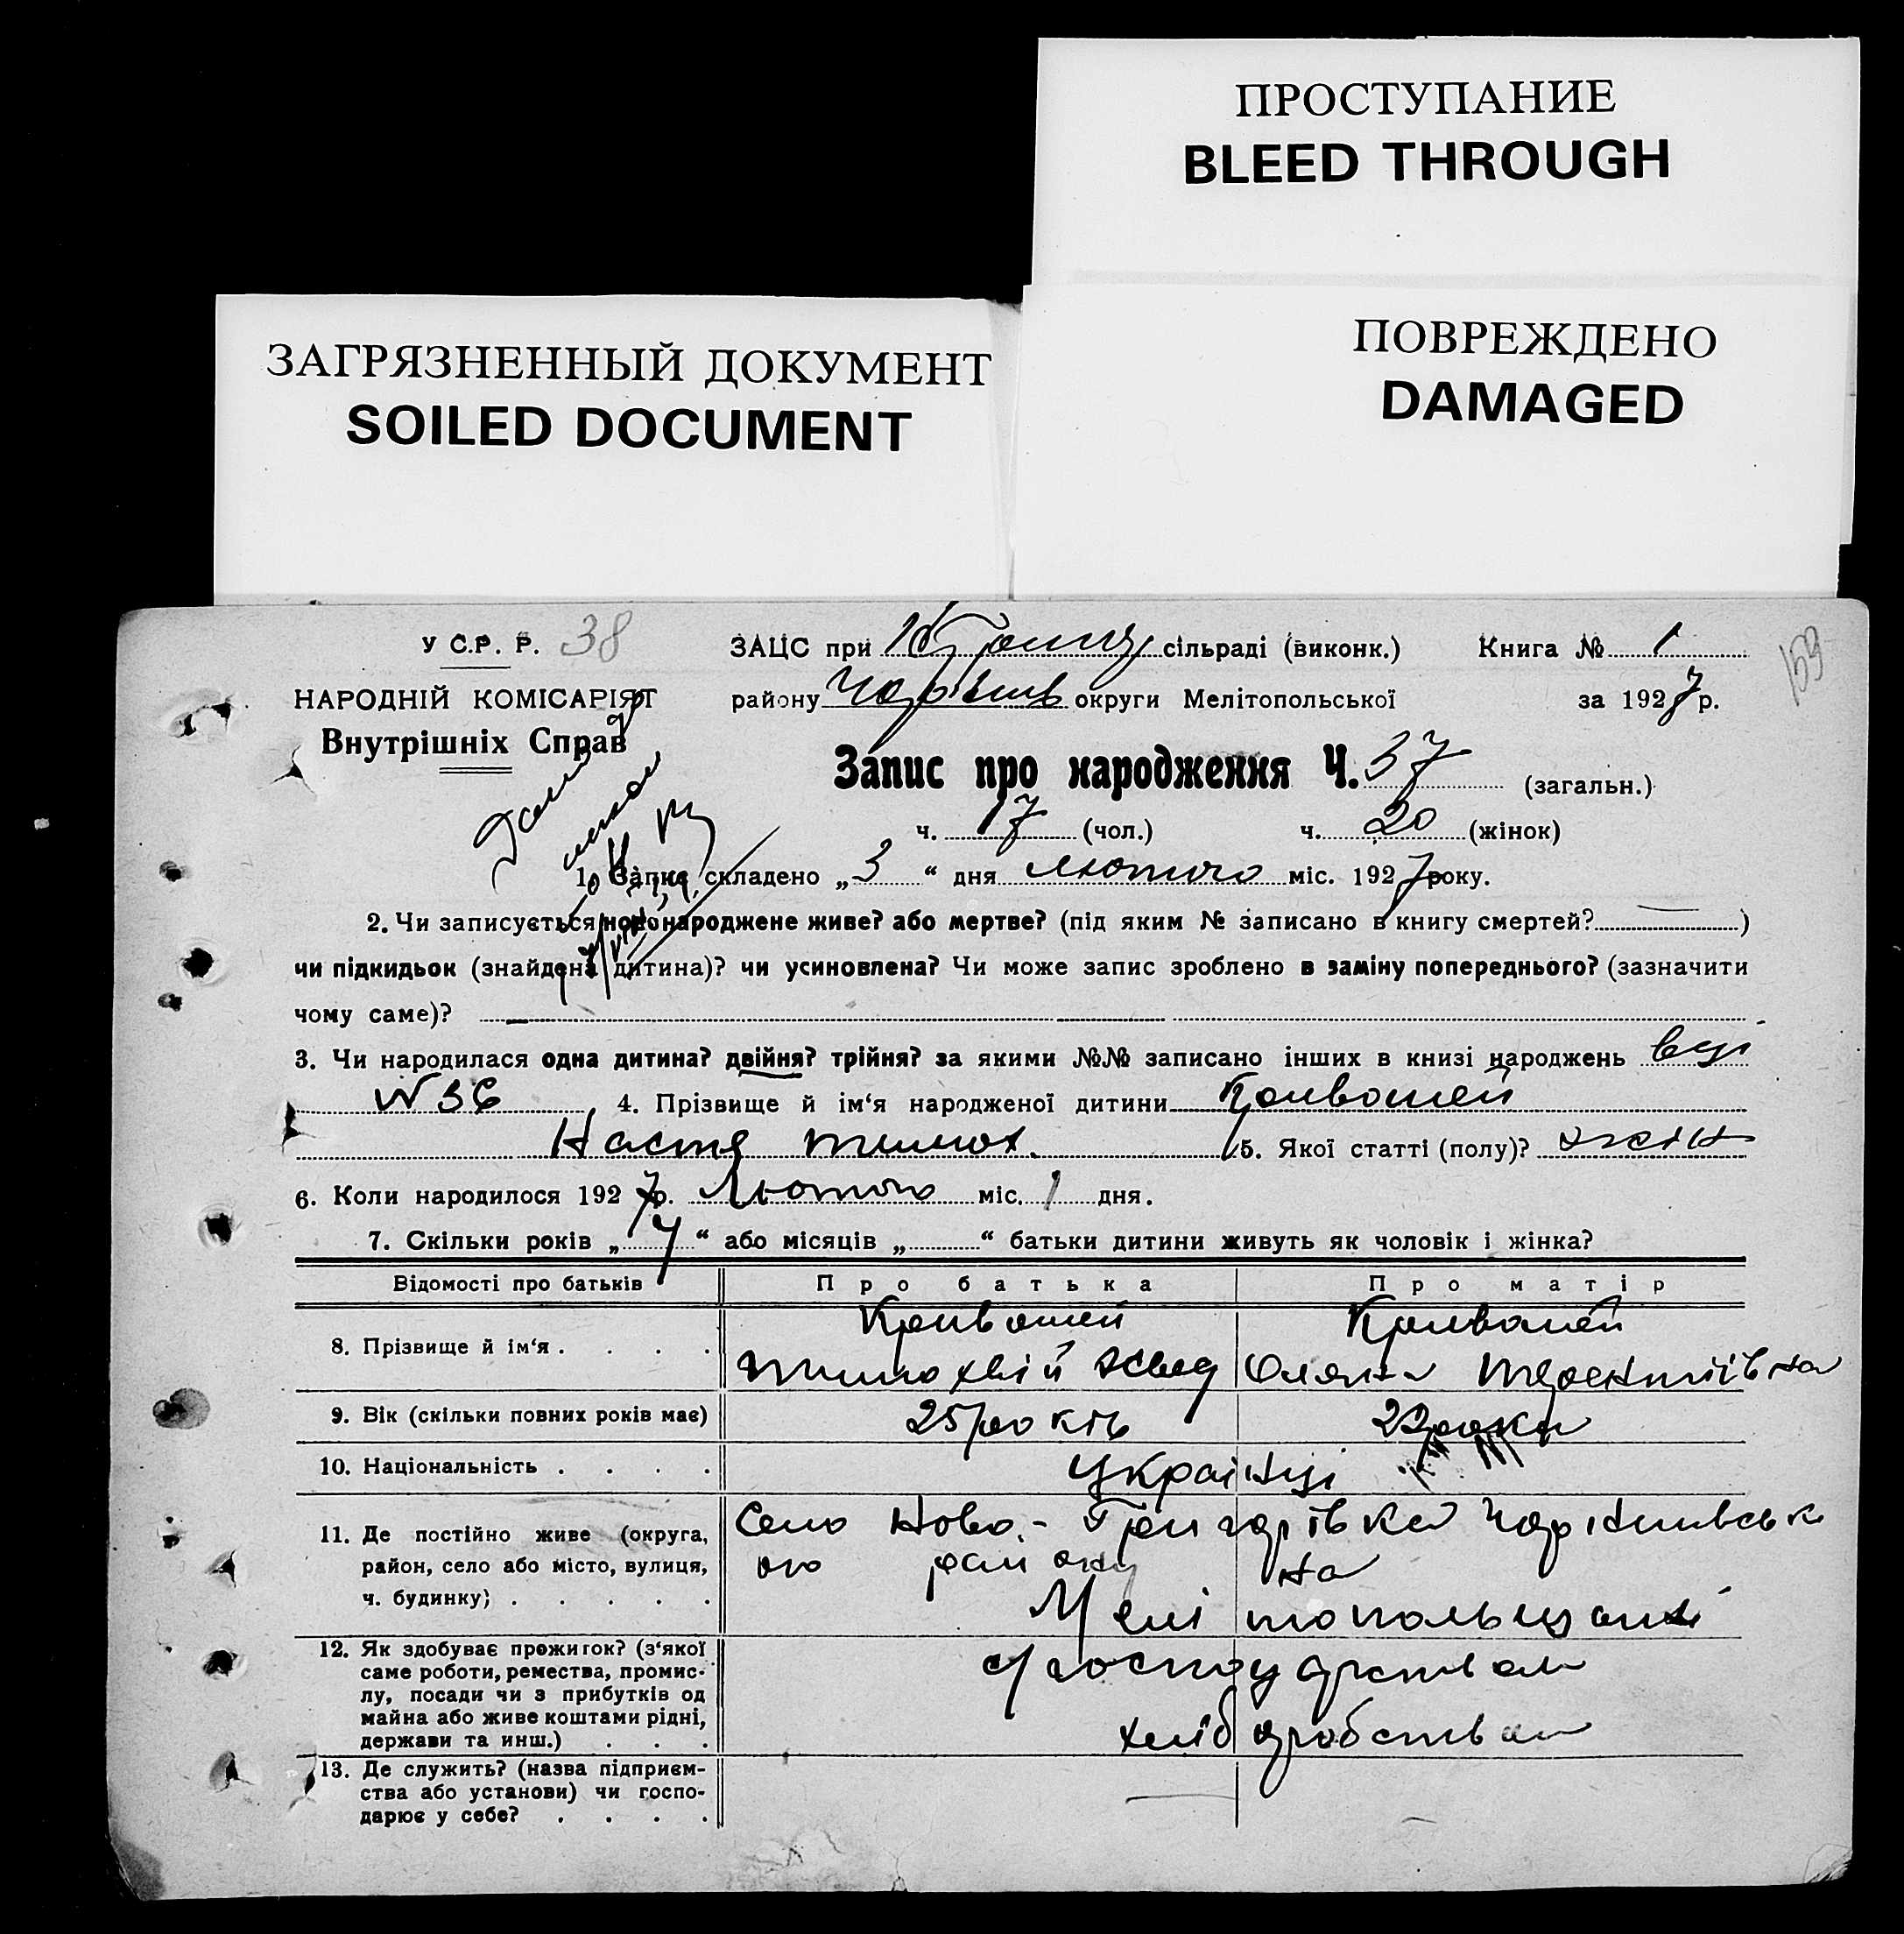 ПРОСТУПАНИЕ
BLEED THROUGH
ЗАГРЯЗНЕННЫЙ ДОКУМЕНТ
SOILED DOCUMENT
ПОВРЕЖДЕНО
DAMAGED
У С.Р. Р. 38
ЗАЦС при сільраді (виконк.) Книга № 1
153
НАРОДНІЙ КОМІСАРІЯТ
Внутрішніх Справ
району округи Мелітопольської за 1927 р.
Запис про народження Ч. 37 (загальн.)
ч. 17 (чол.) ч. 20 (жінок)
1. Запис складено „3“ дня Лютого міс. 1927 року.
2. Чи записується новонароджене живе? або мертве? (під яким № записано в книгу смертей? )
чи підкидьок (знайдена дитина)? чи усиновлена? Чи може запис зроблено в заміну попереднього? (зазначити
чому саме)? —
3. Чи народилася одна дитина? двійня? трійня? за якими №№ записано інших в книзі народжень
N 36 4. Прізвище й ім‘я народженої дитини Кривошей
Настя Тимох. 5. Якої статті (полу)? жін
6. Коли народилося 1927 р. Лютого міс. 1 дня.
7. Скільки років „4“ або місяців „ “ батьки дитини живуть як чоловік і жінка?
Відомості про батьків Про батька Про матір
8. Прізвище й ім‘я . . . . Кривошей Кривошей
Тимохвій Олена
9. Вік (скільки повних років має) 25 років 22 роки
10. Національність . . . . Українці
11. Де постійно живе (округа, район, село або місто, вулиця, ч. будинку; . . . . .
Село Ново-Григорівка Чорнинівськ
ого району на
Мелітопольщині
12. Як здобуває прожиток? (з‘якої саме роботи, ремества, промислу, посади чи з прибутків од майна або живе коштами рідні, держави та инш.) . . .
господарством
хліборобством
13. Де служить? (назва підприємства або установи) чи господарює у себе? . . . . —